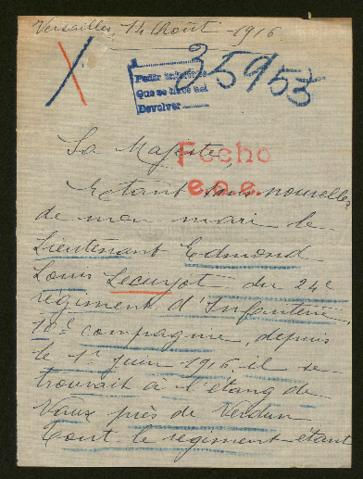 Versailles, 14 Août 1916.
35953
Pedir informes
Que se hace así
Devolver
Sa Majesté,
Fecho
Etant sans nouvelles
e.o.e.
de mon mari le
Lieutenant Edmond
Louis du 24e
régiment d'Infanterie
10e compagnie, depuis
le 1er juin 1916. il se
trouvait à l'étang de
Vaux près de Verdun
tout le régiment étant